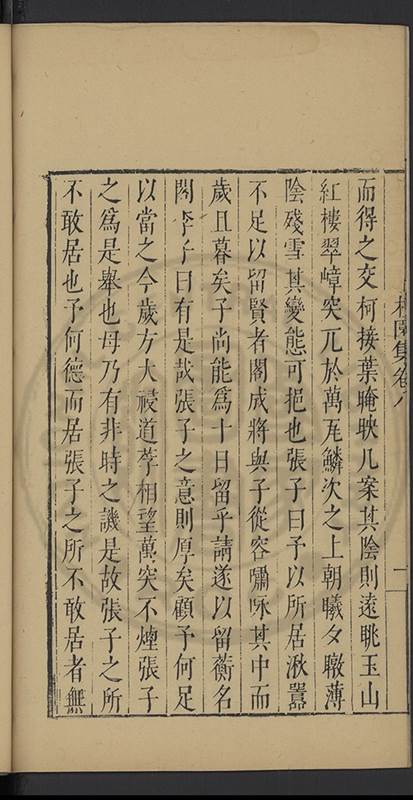 集卷八
二
而得之交柯接葉晻映几案其陰則遠眺玉山
紅樓翠嶂突兀於萬瓦鱗次之上朝曦夕暾薄
陰殘雪其變態可挹也張子曰予以所居湫嚣
不足以留賢者閣成將與子從容嘯咏其中而
歲且暮矣子尚能爲十日留乎請遂以留蘅名
閣李子曰有是哉張子之意則厚矣顧予何足
以當之今歲方大祲道莩相望萬突不煙張子
之爲是舉也母乃有非時之譏是故張子之所
不敢居也予何德而居張子之所不敢居者無